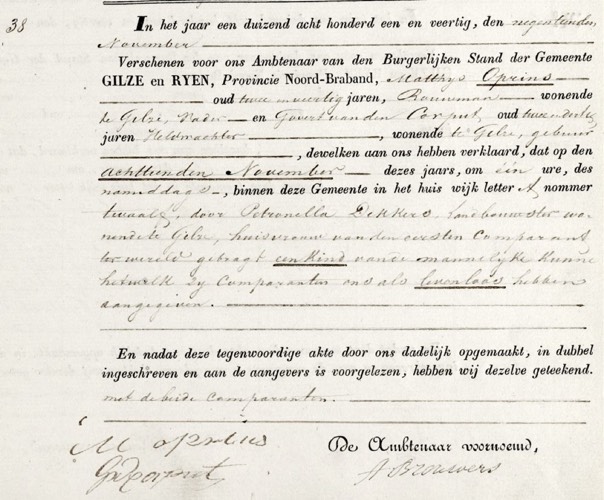 38
In het jaar een duizend acht honderd een en veertig, den negentienden
November
Verschenen voor ons Ambtenaar van den Burgerlijken Stand der Gemeente
GILZE en RYEN, Provincie Noord-Braband, Matthys Oprins
oud twee en veertig jaren, Bouwman wonende
te Gilze, Vader en Govert van den Corput, oud twee en dertig
jaren Veldwachter, wonende te Gilze, gebuur
, dewelken aan ons hebben verklaard, dat op den
achttienden November dezes jaars, om één ure, des
namiddags, binnen deze Gemeente in het huis wijk letter A nommer
twaalf, door Petronella Dekkers, Landbouwster wo-
nende te Gilze, huisvrouw van den eersten Comparant
ter wereld gebragt een Kind van de mannelijke kunne
hetwelk zy Comparanten ons als levenloos hebben
aangegeven.
En nadat deze tegenwoordige akte door ons dadelijk opgemaakt, in dubbel
ingeschreven en aan de aangevers is voorgelezen, hebben wij dezelve geteekend.
met de beide Comparanten.
M oprins
De Ambtenaar voornoemd,
A Brouwers